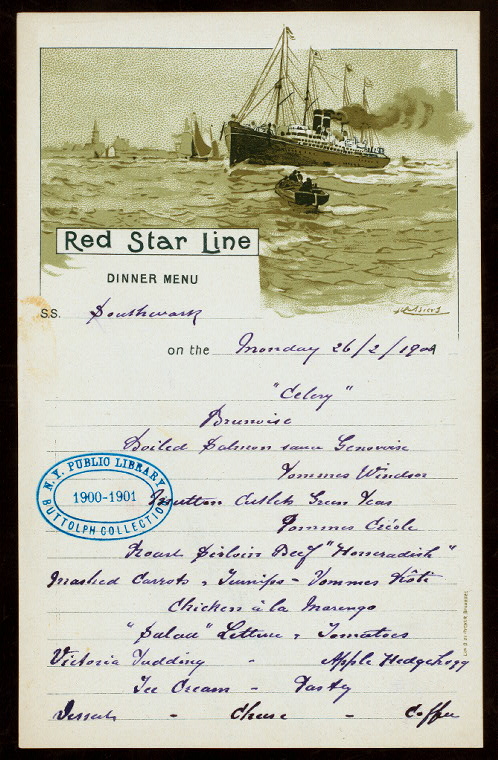 Red Star Line
DINNER MENU
S.S. Southwark
on the Monday 26/2/1900
"Celery"
Brunoise
Boiled Salmon sauce Genovoise
Pommes Windsor
Mutton Cutlets Green Peas
Pommes Créole
Roast Sirloin Beef "Horseradish"
Mashed Carrots & Turnips - Pommes Rôti
Chicken à la Marengo
"Salad" Lettuce & Tomatoes
Victoria Pudding - Apple Hedgehogg
Ice Cream - Pastry
Dessert - Cheese - Coffee
N.Y. PUBLIC LIBRARY
1900-1901
BUTTOLPH COLLECTION